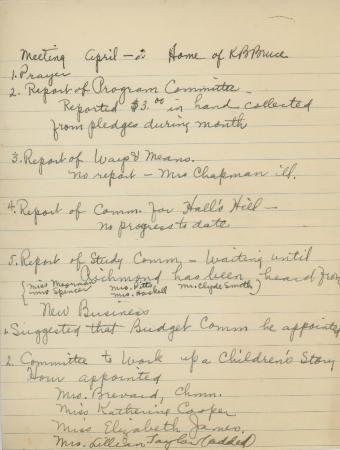 Meeting April — Home of K B Bruce
1. Prayer
2. Report of Program Committee —
Reported $3.00 in hand collected
from pledges during month
3. Report of Ways & Means.
no report — Mrs Chapman ill.
4. Report of Comm. for Hall's Hill —
no progress to date
5. Report of Study Comm — Waiting until
Richmond has been heard from
{ Miss Mrs. Pitts Mrs. Clyde Smith }
Miss Spencer Mrs. Haskell
New Business
1. Suggested that Budget Comm be appointed
2. Committee to Work up a Children's Story
Hour appointed
Mrs. Brevard, Chmn.
Miss Katherine Cooper
Miss Elizabeth James.
Mrs. Lillian Taylor (added